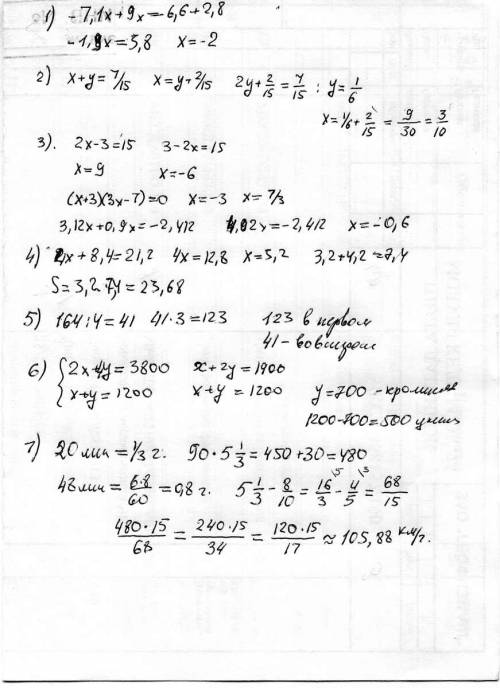 1) -7,1x+9x=-6,6+2,8
-1,9x=3,8 x=-2
2) x+y=7/15 x=y+2/15 2y+2/15=7/15 : y=1/6
x=1/6+2/15=9/30=3/10
3). 2x-3=15 3-2x=15
x=9 x=-6
(x+3)(3x-7)=0 x=-3 x=7/3
3,12x+0,9x=-2,412 4,02x=-2,412 x=-0,6
4) 4x+8,4=21,2 4x=12,8 x=5,2 3,2+4,2=7,4
S=3,2·7,4=23,68
5) 164:4=41 41·3=123 123 в первом
41- во втором
6) {2x+4y=3800 x+2y=1900
{x+y=1200 x+y=1200 y=700 -кроликов
1200-700=500
7) 20 мин=1/3 г. 90·5 1/3=450+30=480
48 мин=6·8/60=0,8 г. 5 1/3-8/10=16/3-4/5=68/15
480·15/68=240·15/34=120·15/17≈105,88 км/г.